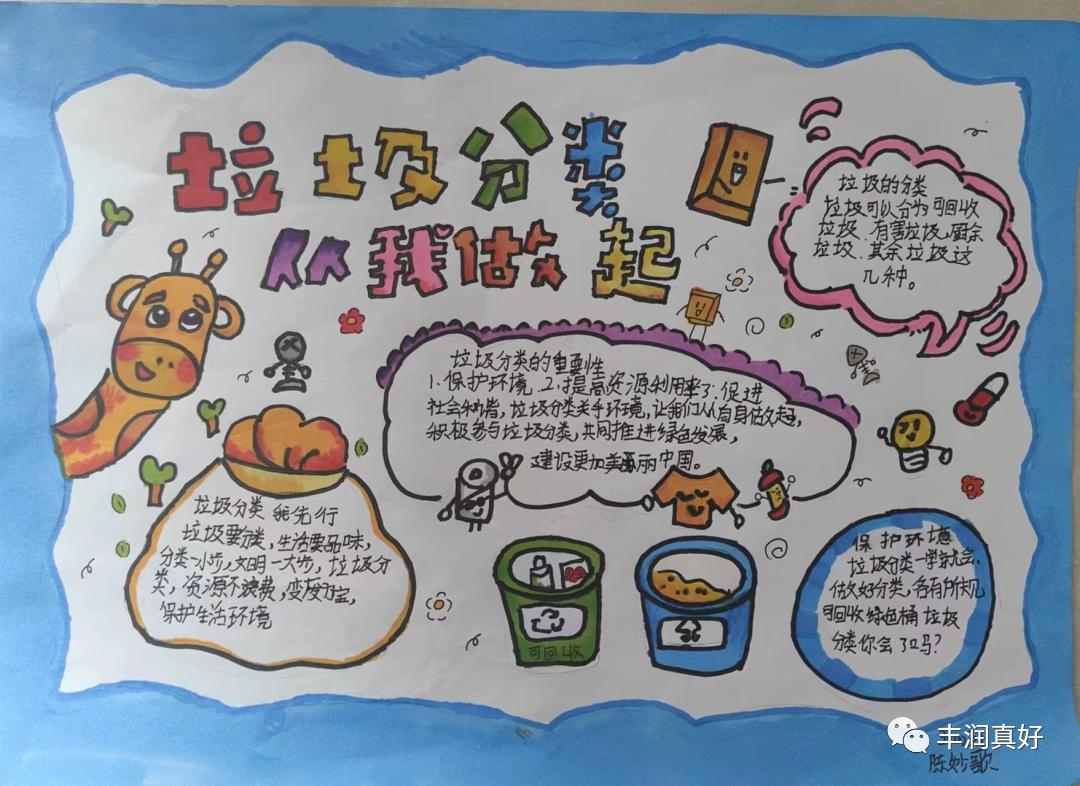 垃圾分类
从我做起
垃圾的分类
垃圾可以分为可回收
垃圾、有害垃圾、厨余
垃圾、其余垃圾这
几种。
垃圾分类的重要性
1.保护环境.2.提高资源利用率3.促进
社会和谐,垃圾分类关乎环境,让我们从自身做起,
积极参与垃圾分类,共同推进绿色发展,
建设更加美丽中国。
垃圾分类我先行
垃圾要分类,生活要品味,
分类一小步,文明一大步,垃圾分
类,资源不浪费,变废为宝,
保护生活环境
保护环境
垃圾分类一学就会,
做好分类,各有所规
可回收绿色桶垃圾
分类你会了吗?
可回收
丰润真好
陈妙歌